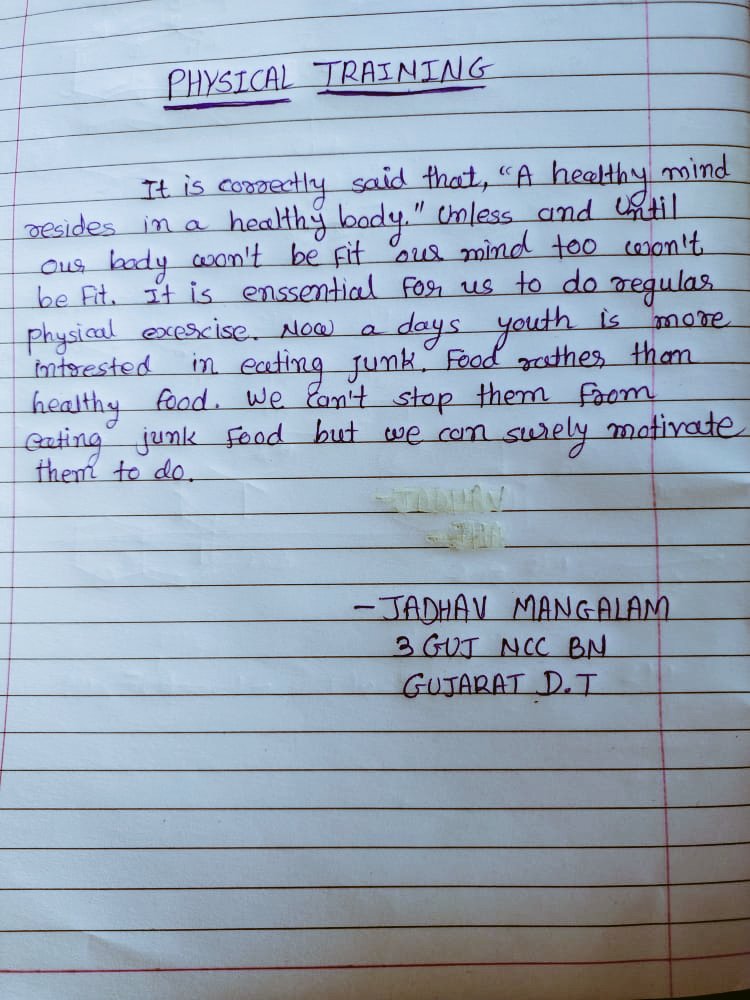 PHYSICAL TRAINING
It is correctly said that, "A healthy mind
resides in a healthy body." Unless and Until
our body won't be fit our mind too won't
be fit. It is enssential for us to do regular
physical exercise. Now a days youth is more
intrested in eating junk. Food rather than
healthy food. We can't stop them from
eating junk food but we can surely motivate
them to do.
-JADHAV
-JHA
-JADHAV MANGALAM
3 GUJ NCC BN
GUJARAT D.T